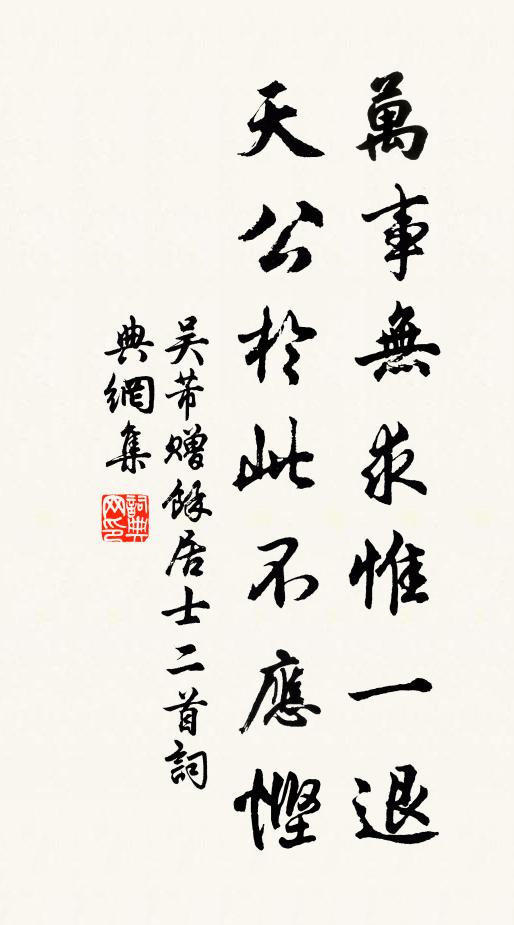 萬事無求惟一退
天公於此不應慳
吴芾贈餘居士二首詞
典網集
詞典網印